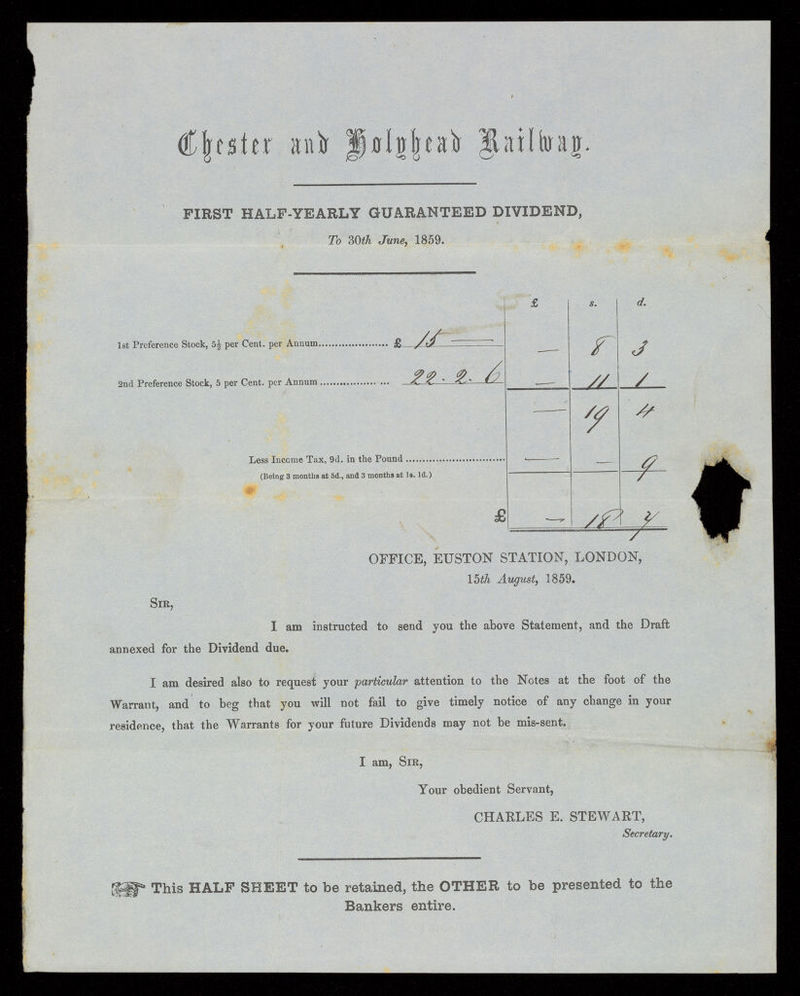 Chester and Holyhead Railway.
FIRST HALF-YEARLY GUARANTEED DIVIDEND,
To 30th June, 1859.
£ s. d.
1st Preference Stock, 5½ per Cent. per Annum..................... £ 15 — — 8 3
2nd Preference Stock, 5 per Cent. per Annum ..................... 22. 2. 6 — 11 1
— 19 4
Less Income Tax, 9d. in the Pound .............................. — — 9
(Being 3 months at 5d., and 3 months at 1s. 1d.)
£ — 18 7
OFFICE, EUSTON STATION, LONDON,
15th August, 1859.
SIR,
I am instructed to send you the above Statement, and the Draft
annexed for the Dividend due.
I am desired also to request your particular attention to the Notes at the foot of the
Warrant, and to beg that you will not fail to give timely notice of any change in your
residence, that the Warrants for your future Dividends may not be mis-sent.
I am, SIR,
Your obedient Servant,
CHARLES E. STEWART,
Secretary.
☞ This HALF SHEET to be retained, the OTHER to be presented to the
Bankers entire.